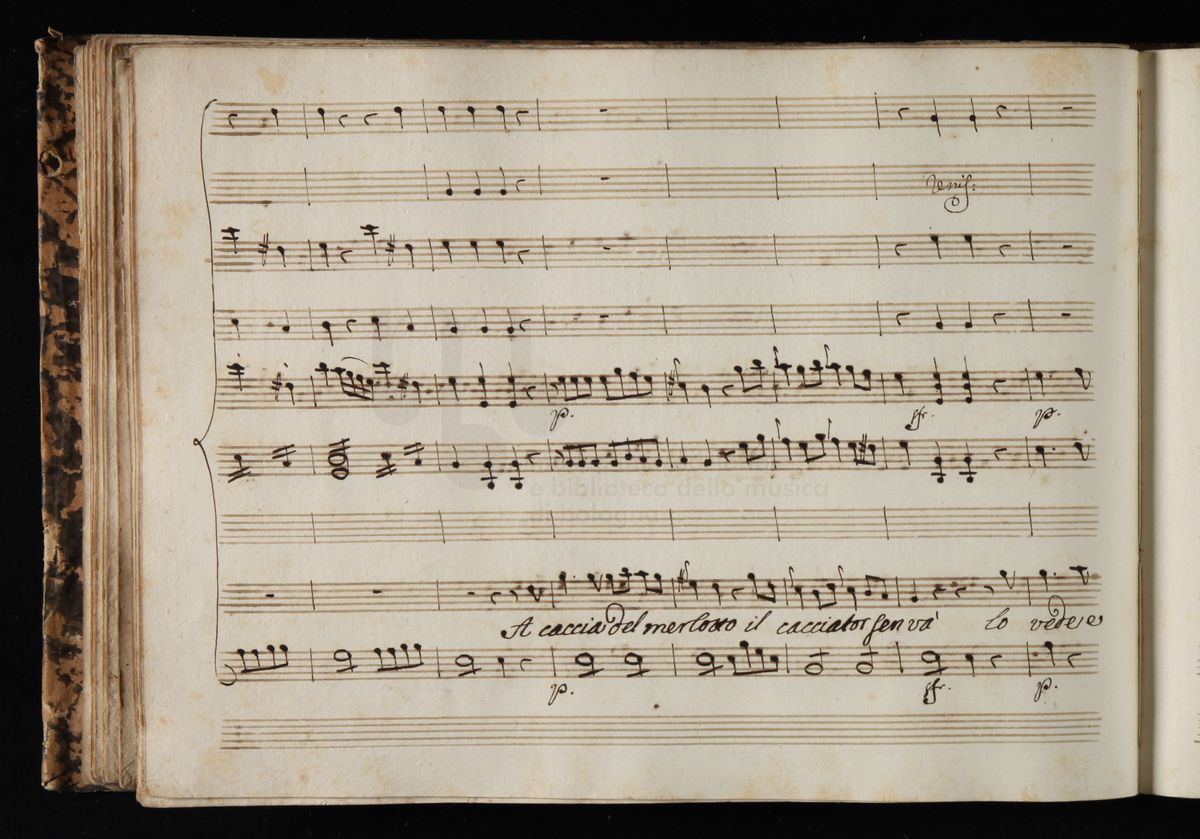 Unis:
p.
sfr.
p.
e biblioteca della musica
di bologna
A caccia del merlotto il cacciator sen va lo vede e
p.
sfr.
p.